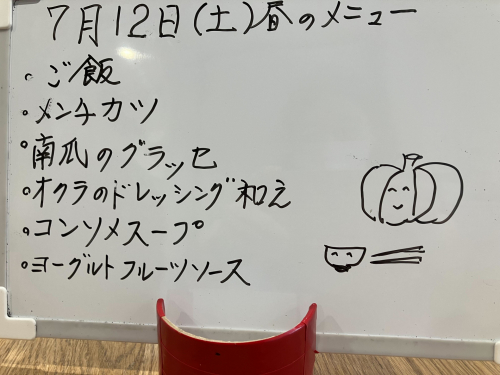 7月12日(土)昼のメニュー
・ご飯
・メンチカツ
・南瓜のグラッセ
・オクラのドレッシング和え
・コンソメスープ
・ヨーグルトフルーツソース